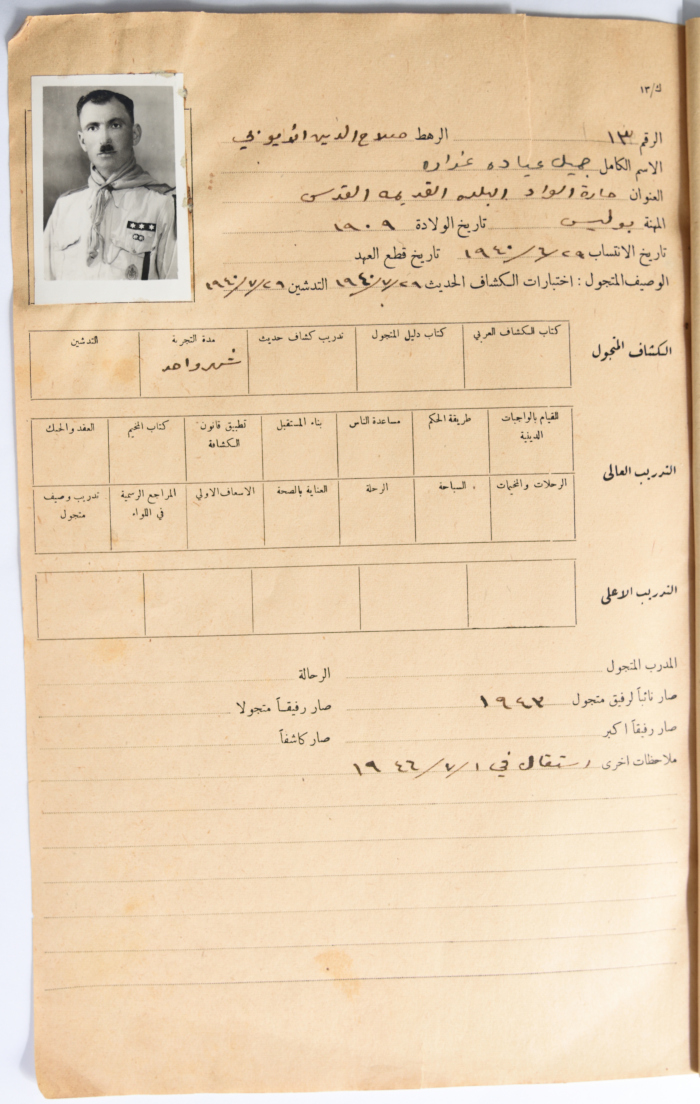 ك/١٣
الرقم ١٣ الرهط صلاح الدين الايوبي
الاسم الكامل جميل عياده غزاره
العنوان حارة الواد البلده القديمه القدس
المهنة بوليس تاريخ الولادة ١٩٠٩
تاريخ الانتساب ٢٩/٦/١٩٤٠ تاريخ قطع العهد
الوصيف المتجول : اختبارات الكشاف الحديث ٢٩/٧/١٩٤٠ التدشين ٢٩/٧/١٩٤٠
الكشاف المتجول
كتاب الكشاف العربي كتاب دليل المتجول تدريب كشاف حديث مدة التجربة التدشين
شهر واحد
التدريب العالى
للقيام بالواجبات الدينية طريقة الحكم مساعدة الناس بناء المستقبل تطبيق قانون الكشافة كتاب المخيم العقد والحبك
الرحلات والمخيمات السباحة الرحلة العناية بالصحة الاسعاف الاولي المراجع الرسمية في اللواء تدريب وصيف متجول
التدريب الاعلى
المدرب المتجول الرحالة
صار نائباً لرفيق متجول ١٩٤٣ صار رفيقـاً متجولا
صار رفيقاً اكبر صار كاشفاً
ملاحظات اخرى استقال في ١/٧/١٩٤٦